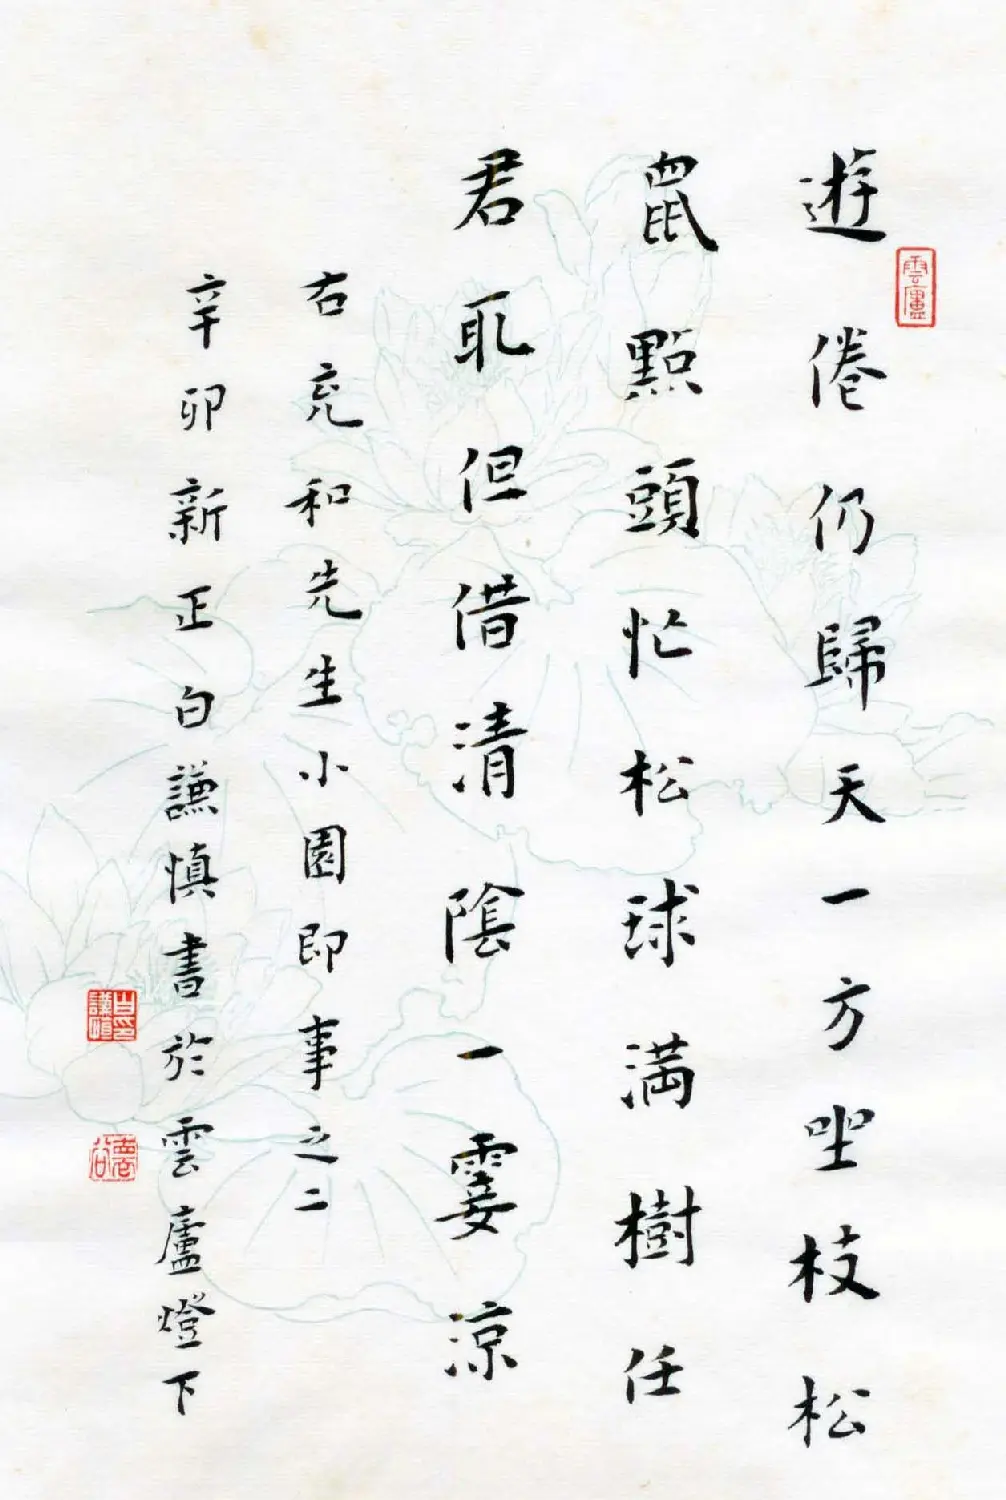 雲廬
遊倦仍歸天一方坐枝松
鼠點頭忙松球滿樹任
君取但借清陰一霎涼
右充和先生小園即事之二
辛卯新正白謙慎書於雲廬燈下
白謙慎印